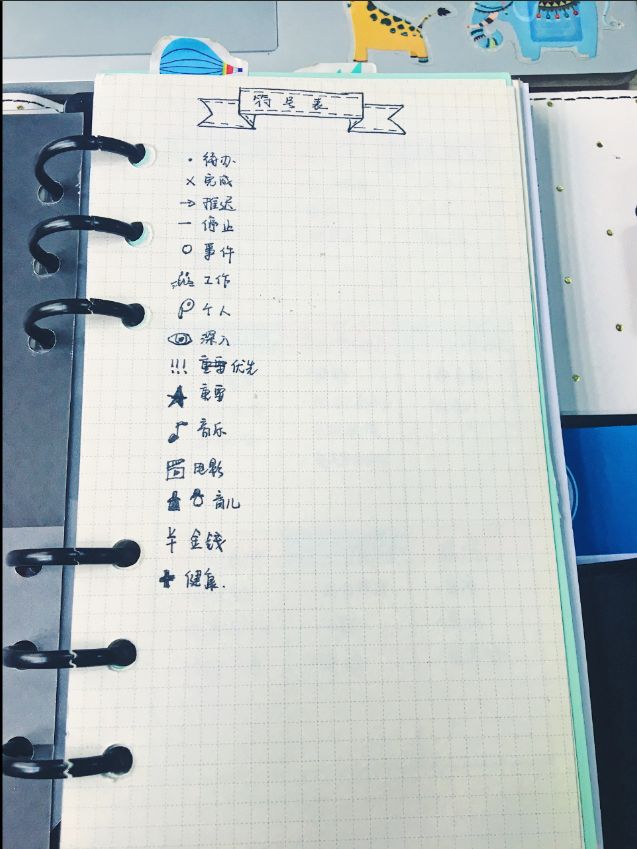 符号表
• 待办
× 完成
→ 推迟
— 停止
○ 事件
工作
个人
深入
!!! 优先
★ 重要
♪ 音乐
电影
育儿
¥ 金钱
✚ 健康.